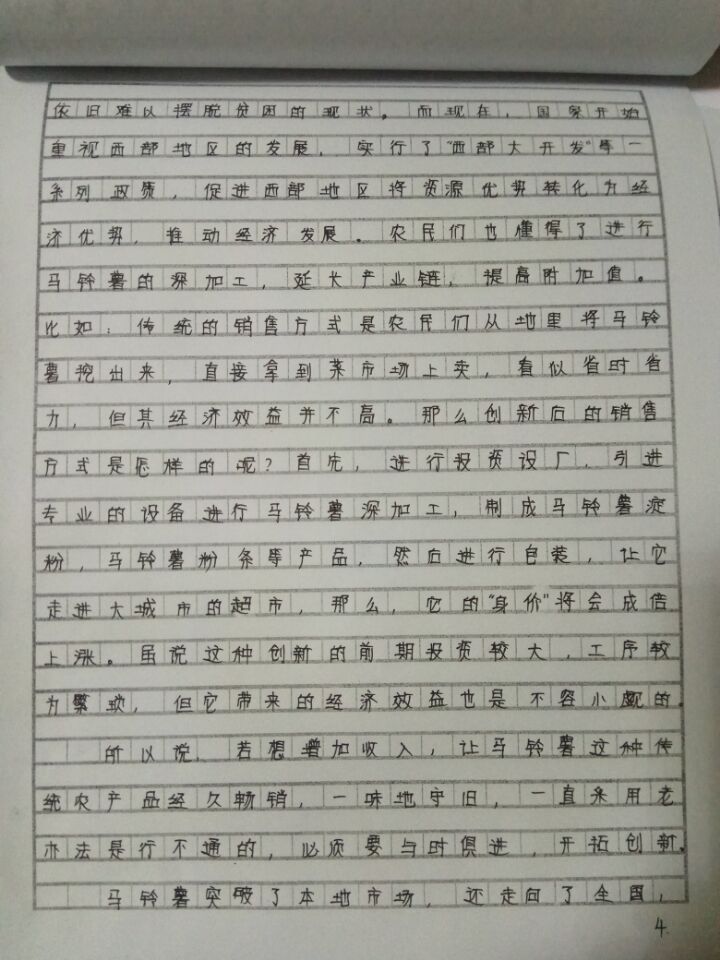 依旧难以摆脱贫困的现状。而现在，国家开始
重视西部地区的发展，实行了"西部大开发"等一
系列政质，促进西部地区将资源优势转化为经
济优势，推动经济发展。农民们也懂得了进行
马铃薯的深加工，延长产业链，提高附加值。
比如：传统的销售方式是农民们从地里将马铃
薯挖出来，直接拿到菜市场上卖，看似省时省
力，但其经济效益并不高。那么创新后的销售
方式是怎样的呢？首先，进行投资设厂，引进
专业的设备进行马铃薯深加工，制成马铃薯淀
粉，马铃薯粉条等产品，然后进行包装，让它
走进大城市的超市，那么，它的"身价"将会成倍
上涨。虽说这种创新的前期投资较大，工序较
为繁琐，但它带来的经济效益也是不容小觑的。
所以说，若想增加收入，让马铃薯这种传
统农产品经久畅销，一味地守旧，一直采用老
办法是行不通的，必须要与时俱进，开拓创新。
马铃薯突破了本地市场，还走向了全国，
4